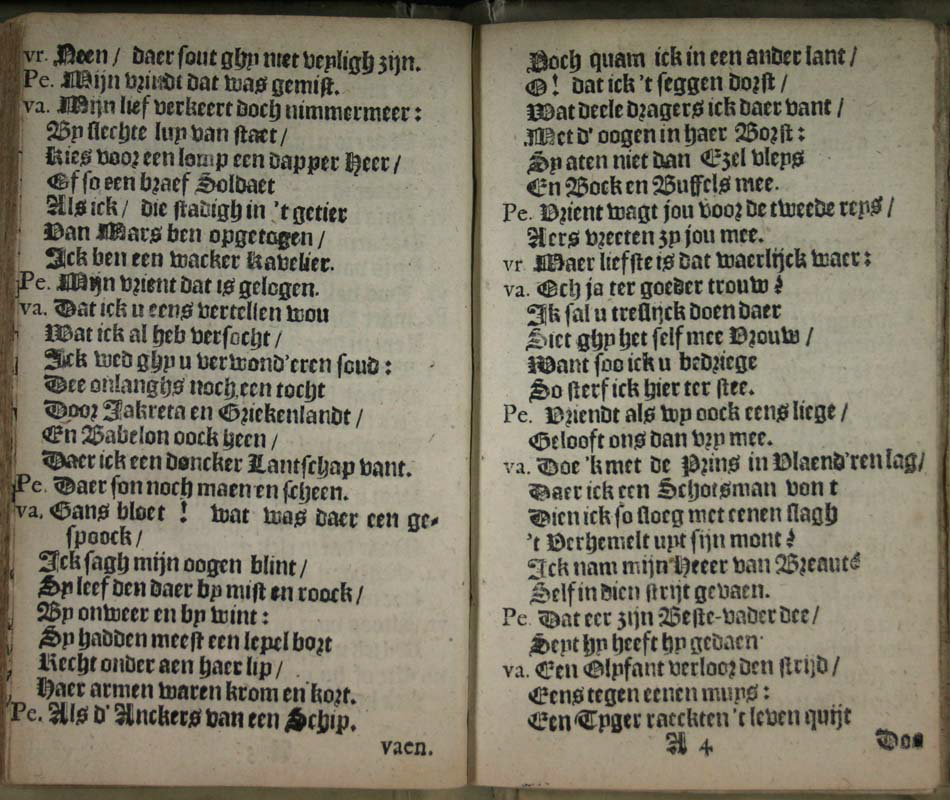 vr. Neen / daer sout ghy niet veyligh zijn.
Pe. Mijn vrindt dat was gemist.
va. Mijn lief verkeert doch nimmermeer :
By slechte luy van staet /
Kies voor een lomp een dapper Heer /
Of so een braef Soldaet
Als ick / die stadigh in 't getier
Van Mars ben opgetogen /
Ick ben een wacker Kavelier.
Pe. Mijn vrient dat is gelogen.
va. Dat ick u eens vertellen wou
Wat ick al heb versocht /
Ick wed ghy u verwond'eren soud :
Dee onlanghs noch een tocht
Door Jakreta en Griekenlandt /
En Babelon oock heen /
Daer ick een doncker Lantschap vant.
Pe. Daer son noch maen en scheen.
va. Gans bloet ! wat was daer een ge-
spoock /
Ick sagh mijn oogen blint /
Sy leef den daer by mist en roock /
By onweer en by wint :
Sy hadden meest een lepel bort
Recht onder aen haer lip /
Haer armen waren krom en kort.
Pe. Als d' Anckers van een Schip.
vaen.
Noch quam ick in een ander lant /
O ! dat ick 't seggen dorst /
Wat deele dragers ick daer vant /
Met d' oogen in haer Borst :
Sy aten niet dan Ezel vleys
En Bock en Buffels mee.
Pe. Vrient wagt jou voor de tweede reys /
Aers vreeten zy jou mee.
vr Maer liefste is dat waerlijck waer :
va. Och ja ter goeder trouw ?
Ik sal u treflijck doen daer
Siet ghy het self mee Vrouw /
Want soo ick u bedriege
So sterf ick hier ter stee.
Pe. Vriendt als wy oock eens liege /
Gelooft ons dan vry mee.
va. Doe 'k met de Prins in Vlaend'ren lag /
Daer ick een Schotsman von t
Dien ick so floeg met eenen slagh
't Verhemelt uyt sijn mont ?
Ick nam mijn Heeer van Breauté
Self in dien strijt gevaen.
Pe. Dat eer zijn Beste-vader dee /
Seyt hy heeft hy gedaen
va. Een Olyfant verloor den strijd /
Eens tegen eenen muys :
Een Tyger raeckten 't leven quijt
A 4
Doe